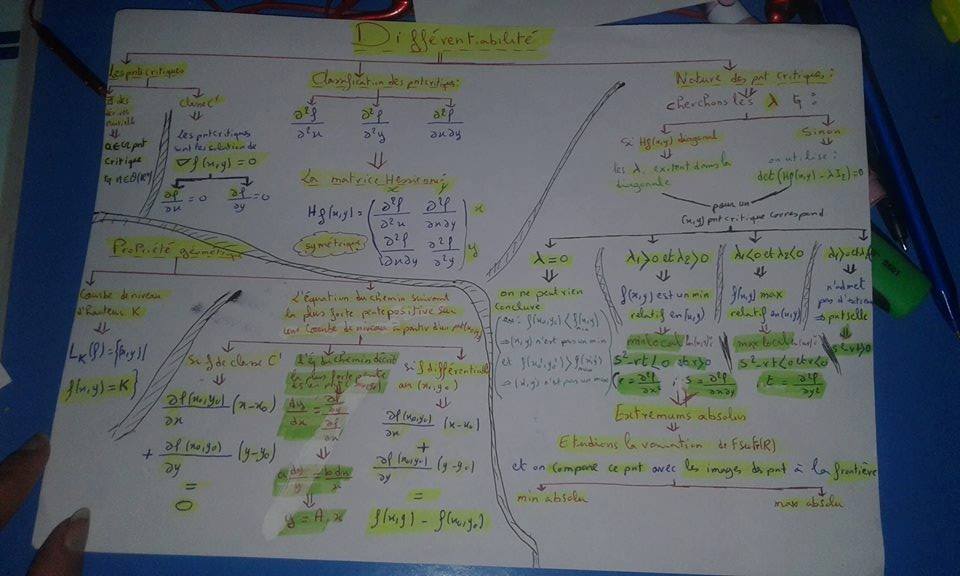 Différentiabilité
Les pnt critiques
classe C¹
les pnt critiques
sont les solution de
∇f(x,y) = 0
∂f/∂x = 0 ∂f/∂y = 0
a ∈ Ω pnt
critique
Classification des pnt critiques :
∂²f/∂²x ∂²f/∂²y ∂²f/∂x∂y
La matrice Hessienne
Hf(x,y) = ( ∂²f/∂²x ∂²f/∂x∂y
∂²f/∂x∂y ∂²f/∂²y )
x
y
symétrique
Nature des pnt critiques :
cherchons les λ tq :
si Hf(x,y) diagonal
les λi existent dans la
diagonale
Sinon
on utilise :
det(Hf(x,y) - λI₂) = 0
pour un
(x,y) pnt critique correspond
λ = 0
on ne peut rien
conclure
⇒ (x,y) n'est pas un min
⇒ (x,y) n'est pas un max
λ₁>0 et λ₂>0
f(x,y) est un min
relatif en (x,y)
min local
s²-rt<0 et r>0
λ₁<0 et λ₂<0
f(x,y) max
relatif en (x,y)
max local
s²-rt<0 et r<0
n'admet
pas d'extremum
⇒ pnt selle
s²-rt>0
r = ∂²f/∂x² ; s = ∂²f/∂x∂y
t = ∂²f/∂y²
Extremums absolus
Etudions la variation de
et on compare ce pnt avec les images des pnt à la frontière
min absolu
max absolu
Propriété géométrique
Courbe de niveau
d'hauteur K
L_K(f) = {(x,y)/
f(x,y) = K}
L'équation du chemin suivant
la plus forte pente positive sur
une Courbe de niveau à partir d'un pnt (x₀,y₀)
Si f de classe C¹
∂f(x₀,y₀)/∂x (x-x₀)
+ ∂f(x₀,y₀)/∂y (y-y₀)
=
0
L'éq du chemin décrit
la plus forte pente
dy/dx = ∂f/∂y / ∂f/∂x
y = A x
si f différentiable
en (x₀,y₀)
∂f(x₀,y₀)/∂x (x-x₀)
+
∂f(x₀,y₀)/∂y (y-y₀)
=
f(x,y) - f(x₀,y₀)